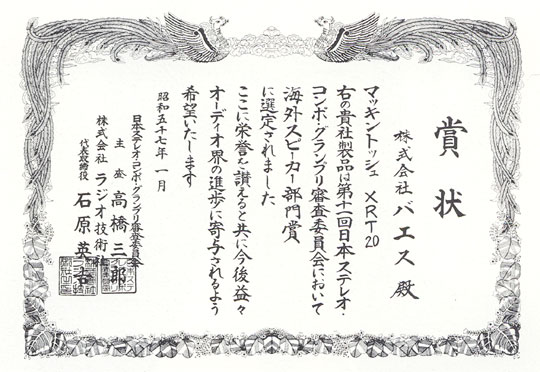 賞状
株式会社 バエス 殿
マッキントッシュ XRT20
右の貴社製品は第十一回日本ステレオ・
コンポ・グランプリ審査委員会において
海外スピーカー部門賞
に選定されました
ここに栄誉を讃えると共に今後益々
オーディオ界の進歩に寄与されるよう
希望いたします
昭和五十七年 一月
日本ステレオ・コンポ・グランプリ審査委員会
主査 高橋三郎
株式会社 ラジオ技術社
代表取締役 石原英